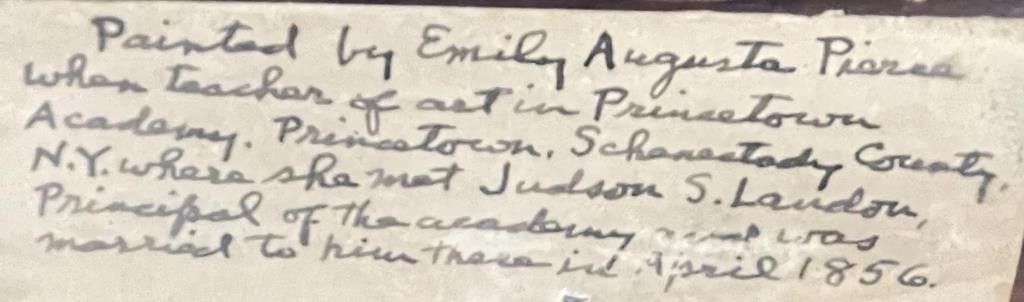 Painted by Emily Augusta Pierce
when teacher of art in Princetown
Academy, Princetown, Schenectady County,
N.Y. where she met Judson S. Landon,
Principal of the academy and was
married to him there in April 1856.